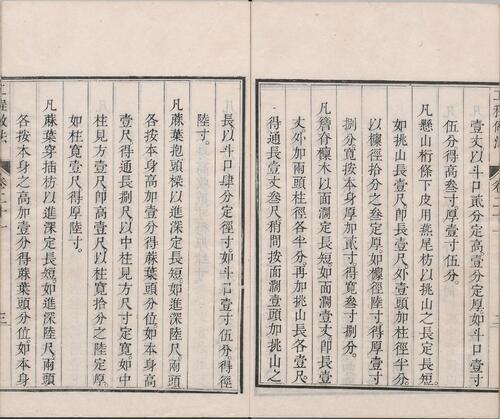 凡
壹丈以斗口貳分定厚如斗口壹寸
伍分得高叁寸厚壹寸伍分
凡懸山桁條下皮用燕尾枋以挑山之長定長短
如挑山長壹尺即長壹尺外壹頭加柱徑半分
以檁徑拾分之叁定厚如檁徑陸寸得厚壹寸
捌分寬按本身厚加貳寸得寬叁寸捌分
凡簷脊檁木以面濶定長短如面濶壹丈即長壹
丈外加兩頭柱徑各半分再加挑山長各壹尺
得通長壹丈叁尺稍間按面濶壹頭加挑山之
長以斗口肆分定徑寸如斗口壹寸伍分得徑
陸寸
凡蔴葉抱頭樑以進深定長短如進深陸尺兩頭
各按本身高加壹分得蔴葉頭分位如本身高
壹尺得通長捌尺以中柱見方尺寸定寬如中
柱見方壹尺即高壹尺以柱寬拾分之陸定厚
如柱寬壹尺得厚陸寸
凡蔴葉穿插枋以進深定長短如進深陸尺兩頭
各按本身之高加壹分得蔴葉頭分位如本身
工程做法
卷二十一
三